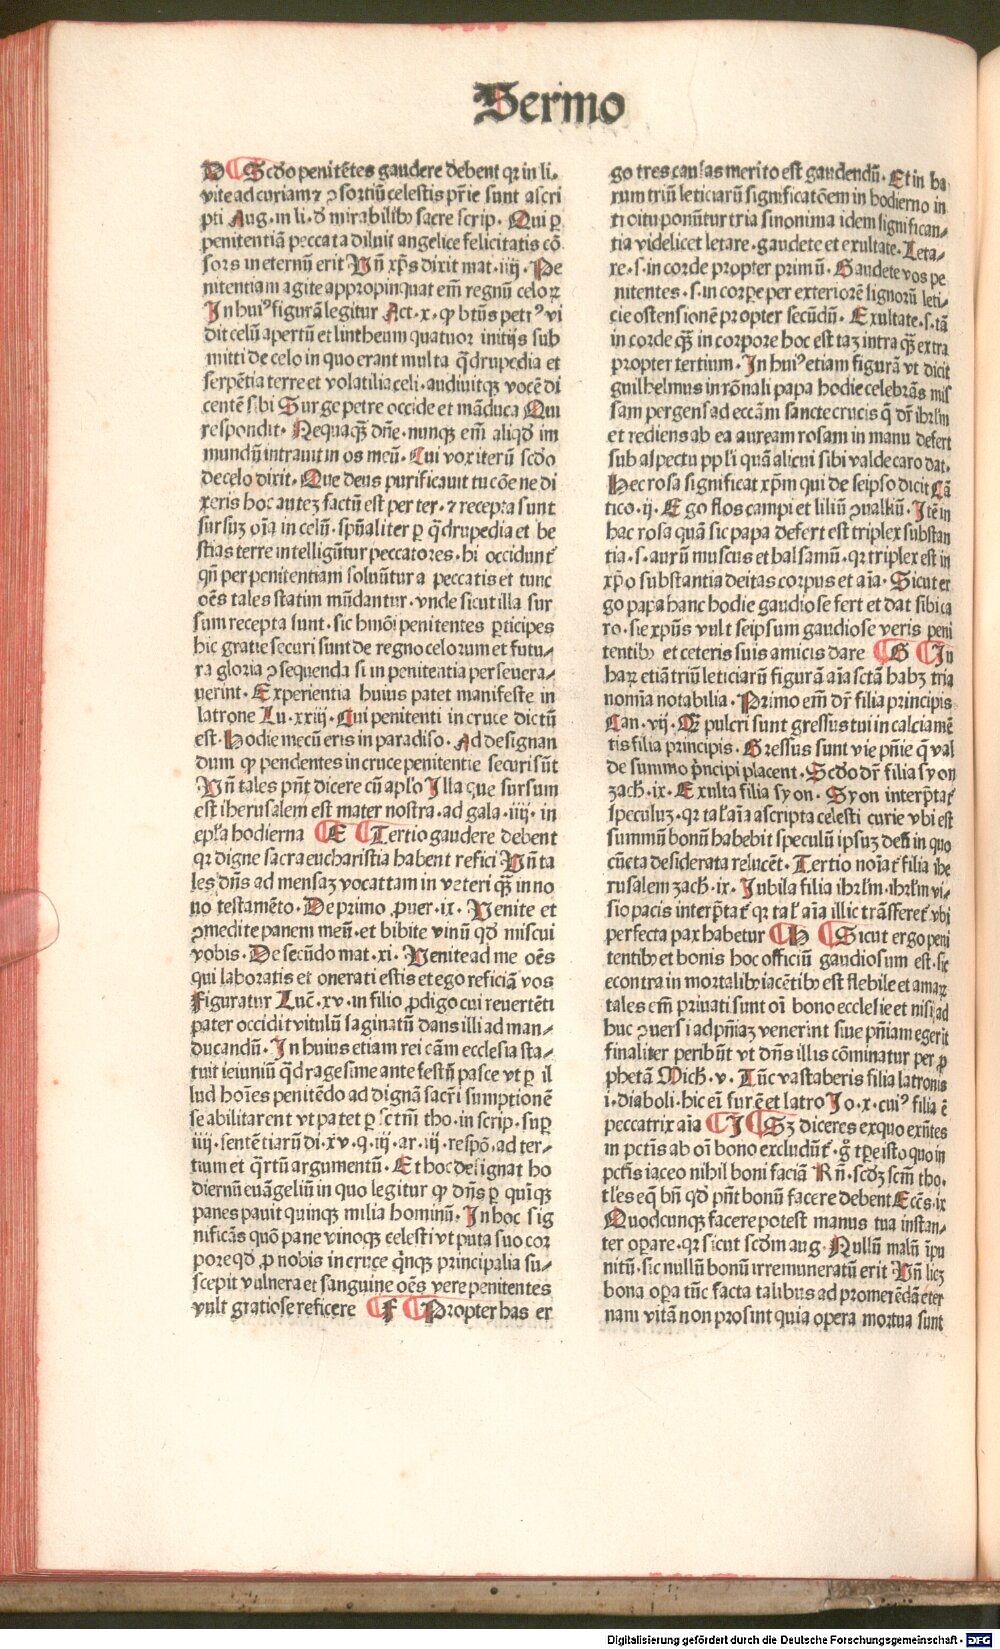 Sermo
D Scd̄o penitētes gaudere debent qꝛ in li-
uite ad curiam ⁊ ꝯsortiū celestis pr̄ie sunt ascri
pti Aug. in li. d̄ mirabilibꝫ sacre scrip. Qui ꝑ
penitentiā peccata diluit angelice felicitatis cō
sors in eternū erit Vn̄ xp̄s dixit mat. iiij. Pe
nitentiam agite appropinquat em̄ regnū celoꝝ
In huiꝰ figurā legitur Act. x. ꝙ btūs petrꝰ vi
dit celū apertū et lintheum quatuor initijs sub
mitti de celo in quo erant multa q̄drupedia et
serpētia terre et volatilia celi. audiuitqꝫ vocē di
centē sibi Surge petre occide et māduca Qui
respondit. Nequaqꝫ dn̄e. nunqꝫ em̄ aliqd̄ im
mundū intrauit in os meū. Cui vox iterū scd̄o
de celo dixit. Que deus purificauit tu cōe ne di
xeris hoc autez factū est per ter. ⁊ recepta sunt
sursuz oīa in celū. spūaliter ꝑ q̄drupedia et be
stias terre intelligūtur peccatores. hi occidunt̄
qn̄ per penitentiam soluūtur a peccatis et tunc
oēs tales statim mūdantur. vnde sicut illa sur
sum recepta sunt. sic hmōi penitentes ꝑticipes
hic gratie securi sunt de regno celorum et futu-
ra gloria ꝯsequenda si in penitentia perseuera-
uerint. Experientia huius patet manifeste in
latrone Lu. xxiij. Cui penitenti in cruce dictū
est. Hodie mecū eris in paradiso. Ad designan
dum ꝙ pendentes in cruce penitentie securi sūt
Vn̄ tales pn̄t dicere cū apl̄o Illa que sursum
est iherusalem est mater nostra. ad gala. iiij. in
epl̄a hodierna E Tertio gaudere debent
qꝛ digne sacra eucharistia habent refici Vn̄ ta
les dn̄s ad mensaz vocat tam in veteri qꝫ in no
no testamēto. De primo ꝓuer. ix. Venite et
ꝯmedite panem meū. et bibite vinū qd̄ miscui
vobis. De secūdo mat. xi. Venite ad me oēs
qui laboratis et onerati estis et ego reficiā vos
Figuratur Luc̄. xv. in filio ꝓdigo cui reuertēti
pater occidit vitulū saginatū dans illi ad man-
ducandū. In huius etiam rei cām ecclesia sta-
tuit ieiuniū q̄dragesime ante festū pasce vt ꝑ il
lud hoīes penitēdo ad dignā sacri sumptionē
se abilitarent vt patet ꝑ sctm̄ tho. in scrip. suꝑ
iiij. sentētiarū di. xv. q. iij. ar. iij. respō. ad ter-
tium et q̄rtū argumentū. Et hoc designat ho
diernū euāgeliū in quo legitur ꝙ dn̄s ꝑ quīqꝫ
panes pauit quinqꝫ milia hominū. In hoc sig
nificās quō pane vinoqꝫ celesti vt puta suo cor
pore qd̄ ꝓ nobis in cruce q̄nqꝫ principalia su-
scepit vulnera et sanguine oēs vere penitentes
vult gratiose reficere F Propter has er
go tres causas merito est gaudendū. Et in ha
rum triū leticiarū significatōem in hodierno in
troitu ponūtur tria sinonima idem significan-
tia videlicet letare. gaudete et exultate. Leta-
re. s. in corde propter primū. Gaudete vos pe
nitentes. s. in corꝑe per exteriorē signorū leti-
cie ostensionē propter secūdū. Exultate. s. tā
in corde qꝫ in corpore hoc est taz intra qꝫ extra
propter tertium. In huiꝰ etiam figurā vt dicit
guilhelmus in rōnali papa hodie celebrās mis
sam pergens ad eccām sancte crucis q̄ dr̄ ihrl̄m
et rediens ab ea auream rosam in manu defert
sub aspectu ppl̄i quā alicui sibi valde caro dat.
Hec rosa significat xp̄m qui de seipso dicit Cā
tico. ij. Ego flos campi et liliū ꝯualliū. Itē in
hac rosa quā sic papa defert est triplex substan
tia. s. aurū muscus et balsamū. qꝛ triplex est in
xp̄o substantia deitas corpus et aīa. Sicut er
go papa hanc hodie gaudiose fert et dat sibi ca
ro. sic xp̄us vult seipsum gaudiose veris peni
tentibꝫ et ceteris suis amicis dare G In
haꝝ etiā triū leticiarū figurā aīa sctā habꝫ tria
nomīa notabilia. Primo em̄ dr̄ filia principis
Can. vij. Qꝫ pulcri sunt gressus tui in calciamē
tis filia principis. Gressus sunt vie pn̄ie q̄ val
de summo p̄ncipi placent. Scd̄o dr̄ filia syon
zach. ix. Exulta filia syon. Syon interp̄tat̄
speculuz. qꝛ tal̄ aīa ascripta celesti curie vbi est
summū bonū habebit speculū ipsuz deū in quo
cūcta desiderata relucēt. Tertio noīat̄ filia ihe
rusalem zach. ix. Iubila filia ihrl̄m. ihrl̄m vi-
sio pacis interp̄tat̄ qꝛ tal̄ aīa illic trāsferet̄ vbi
perfecta pax habetur H Sicut ergo peni
tentibꝫ et bonis hoc officiū gaudiosum est. sic
econtra in mortalibꝫ iacētibꝫ est flebile et amaꝝ
tales em̄ priuati sunt oī bono ecclesie et nisi ad
huc ꝯuersi ad pn̄iaz venerint siue pn̄iam egerīt
finaliter peribūt vt dn̄s illis cōminatur per ꝓ
phetā Mich. v. Tūc vastaberis filia latronis
i. diaboli. hic ei fur ē et latro Jo. x. cuiꝰ filia ē
peccatrix aīa I Sꝫ diceres exquo exn̄tes
in pctīs ab oī bono excludūt̄. g̊ tꝑe isto quo in
pctīs iaceo nihil boni faciā Rn̄. scd̄ꝫ scm̄ tho.
tles eqꝫ bn̄ qd̄ pn̄t bonū facere debent Ecc̄s. ix
Quodcunqꝫ facere potest manus tua instan-
ter oꝑare. qꝛ sicut scd̄m aug. Nullū malū īpu
nitū. sic nullū bonū irremuneratū erit Vn̄ licꝫ
bona oꝑa tūc facta talibus ad promerēdā eter
nam vitā non prosint quia opera mortua sunt
Digitalisierung gefördert durch die Deutsche Forschungsgemeinschaft - DFG